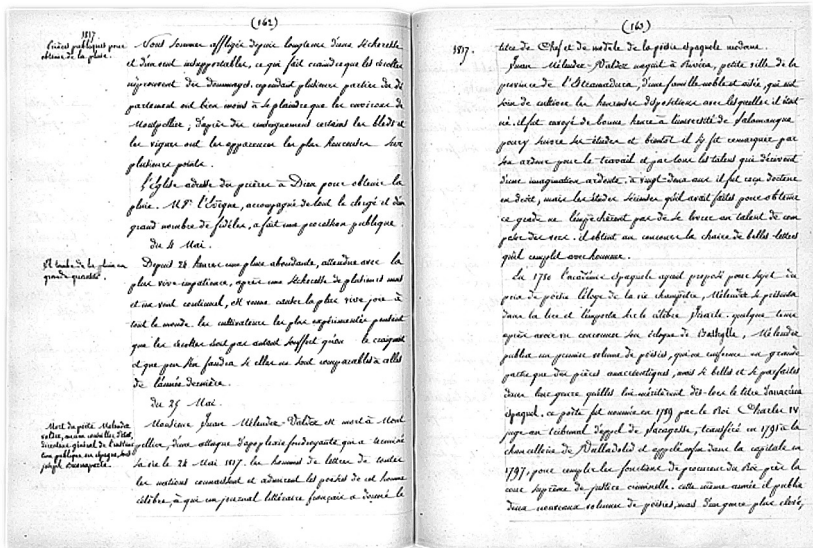 (162)
1817
Prières publiques pour
obtenir de la pluie.
Nous sommes affligés depuis longtems d'une sécheresse
et d'un vent insupportable, ce qui fait craindre que les récoltes
n'éprouvent des dommages; cependant plusieurs parties du dé
partement ont bien moins à se plaindre que les environs de
Montpellier; d'après des renseignements certains les bleds et
les vignes ont les apparences les plus heureuses sur
plusieurs points.
l'Eglise adresse des prières à Dieu pour obtenir la
pluie. Mgr l'Evêque, accompagné de tout le clergé et d'un
grand nombre de fidèles, a fait une procession publique.
du 4 Mai.
Il tombe de la pluie en
grande quantité.
Depuis 24 heures une pluie abondante, attendue avec la
plus vive impatience, après une sécheresse de plusieurs mois
et un vent continuel, est venue causer la plus vive joie à
tout le monde. les cultivateurs les plus expérimentés pensent
que les récoltes n'ont pas autant souffert qu'on le craignait
et que peu s'en faudra si elles ne sont comparables à celles
de l'année dernière.
du 25 Mai.
Mort du poète Melendez
valdez, ancien conseiller d'état,
Directeur général de l'instruc
tion publique en espagne, sous
joseph Buonaparte.
Monsieur Juan Mélendez-Valdez est mort à Mont
pellier, d'une attaque d'apoplexie foudroyante qui a terminé
sa vie le 24 Mai 1817. les hommes de lettres de toutes
les nations connaissent et admirent les poésies de cet homme
célèbre, à qui un journal littéraire français a donné le
(163)
1817.
titre de Chef et de modèle de la poésie espagnole moderne.
Juan Mélendez-Valdez naquit à Rivéra, petite ville de la
province de l'Estramadura, d'une famille noble et aisée, qui eut
soin de cultiver les heureuses dispositions avec lesquelles il était
né. il fut envoyé de bonne heure à l'université de Salamanque
pour y suivre ses études et bientôt il s'y fit remarquer par
son ardeur pour le travail et par tous les talens qui dérivent
d'une imagination ardente. à vingt-deux ans il fut reçu docteur
en droit, mais les études sérieuses qu'il avait faites pour obtenir
ce grade ne l'empêchèrent pas de se livrer au talent de com
poser des vers. il obtint au concours la chaire de belles lettres
qu'il remplit avec honneur.
En 1780 l'académie espagnole ayant proposé pour sujet du
prix de poésie l'éloge de la vie champêtre, Mélendez se présenta
dans la lice et l'emporta sur le célèbre Iriarte. quelque tems
après avoir vu couronner son églogue de Bathylle, Mélendez
publia un premier volume de poésies, qui ne renferme en grande
partie que des pièces anacréontiques, mais si belles et si parfaites
dans leur genre qu'elles lui méritèrent dès-lors le titre d'anacréon
espagnol. ce poète fut nommé en 1789 par le Roi Charles IV
juge au tribunal d'appel de Saragosse, transféré en 1791 à la
chancellerie de Valladolid et appelé enfin dans la capitale en
1797, pour remplir les fonctions de procureur du Roi près la
cour suprême de justice criminelle. cette même année il publia
deux nouveaux volumes de poésies, mais d'un genre plus élevé,